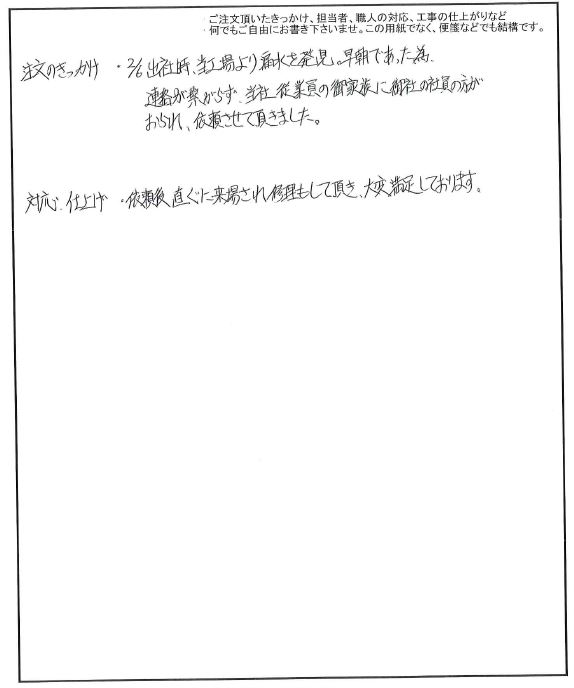 ご注文頂いたきっかけ、担当者、職人の対応、工事の仕上がりなど
何でもご自由にお書き下さいませ。この用紙でなく、便箋などでも結構です。
注文のきっかけ ・2/6出社時、当工場より漏水を発見。早朝であった為、
連絡が繋がらず、当社従業員の御家族に御社の社員の方が
おられ、依頼させて頂きました。
対応、仕上げ ・依頼後直ぐに来場され修理もして頂き、大変満足しております。